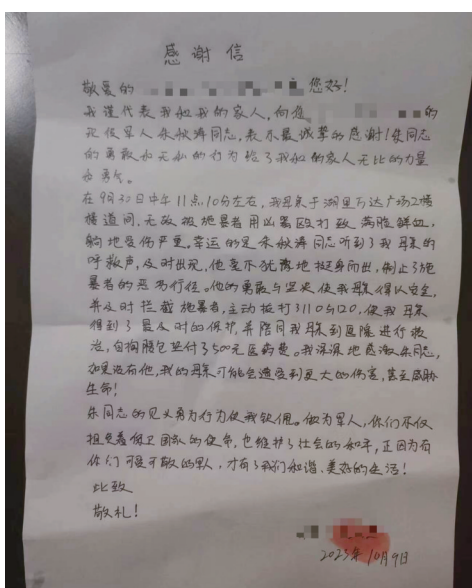 感谢信
敬爱的 您好！
我谨代表我和我的家人，向您 的
现役军人朱秋涛同志，表示最诚挚的感谢！朱同志
的勇敢和无私的行为给了我和的家人无比的力量
和勇气。
在9月30日中午11点10分左右，我母亲于湖里万达广场2楼
楼道间，无故被施暴者用凶器殴打致满脸鲜血，
躺地受伤严重。幸运的是朱秋涛同志听到了我母亲的
呼救声，及时出现，他毫不犹豫地挺身而出，制止了施
暴者的恶劣行径。他的勇敢与坚决使我母亲得以安全，
并及时拦截施暴者，主动拨打了110与120，使我母亲
得到了最及时的保护，并陪同我母亲到医院进行救
治，自掏腰包垫付了500元医药费。我深深地感激朱同志，
如果没有他，我的母亲可能会遭受到更大的伤害，甚至威胁
生命！
朱同志的见义勇为行为使我钦佩。做为军人，你们不仅
担负着保卫国家的使命，也维护了社会的和平，正因为有
你们可爱可敬的军人，才有了我们和谐、美好的生活！
此致
敬礼！
2023年10月9日